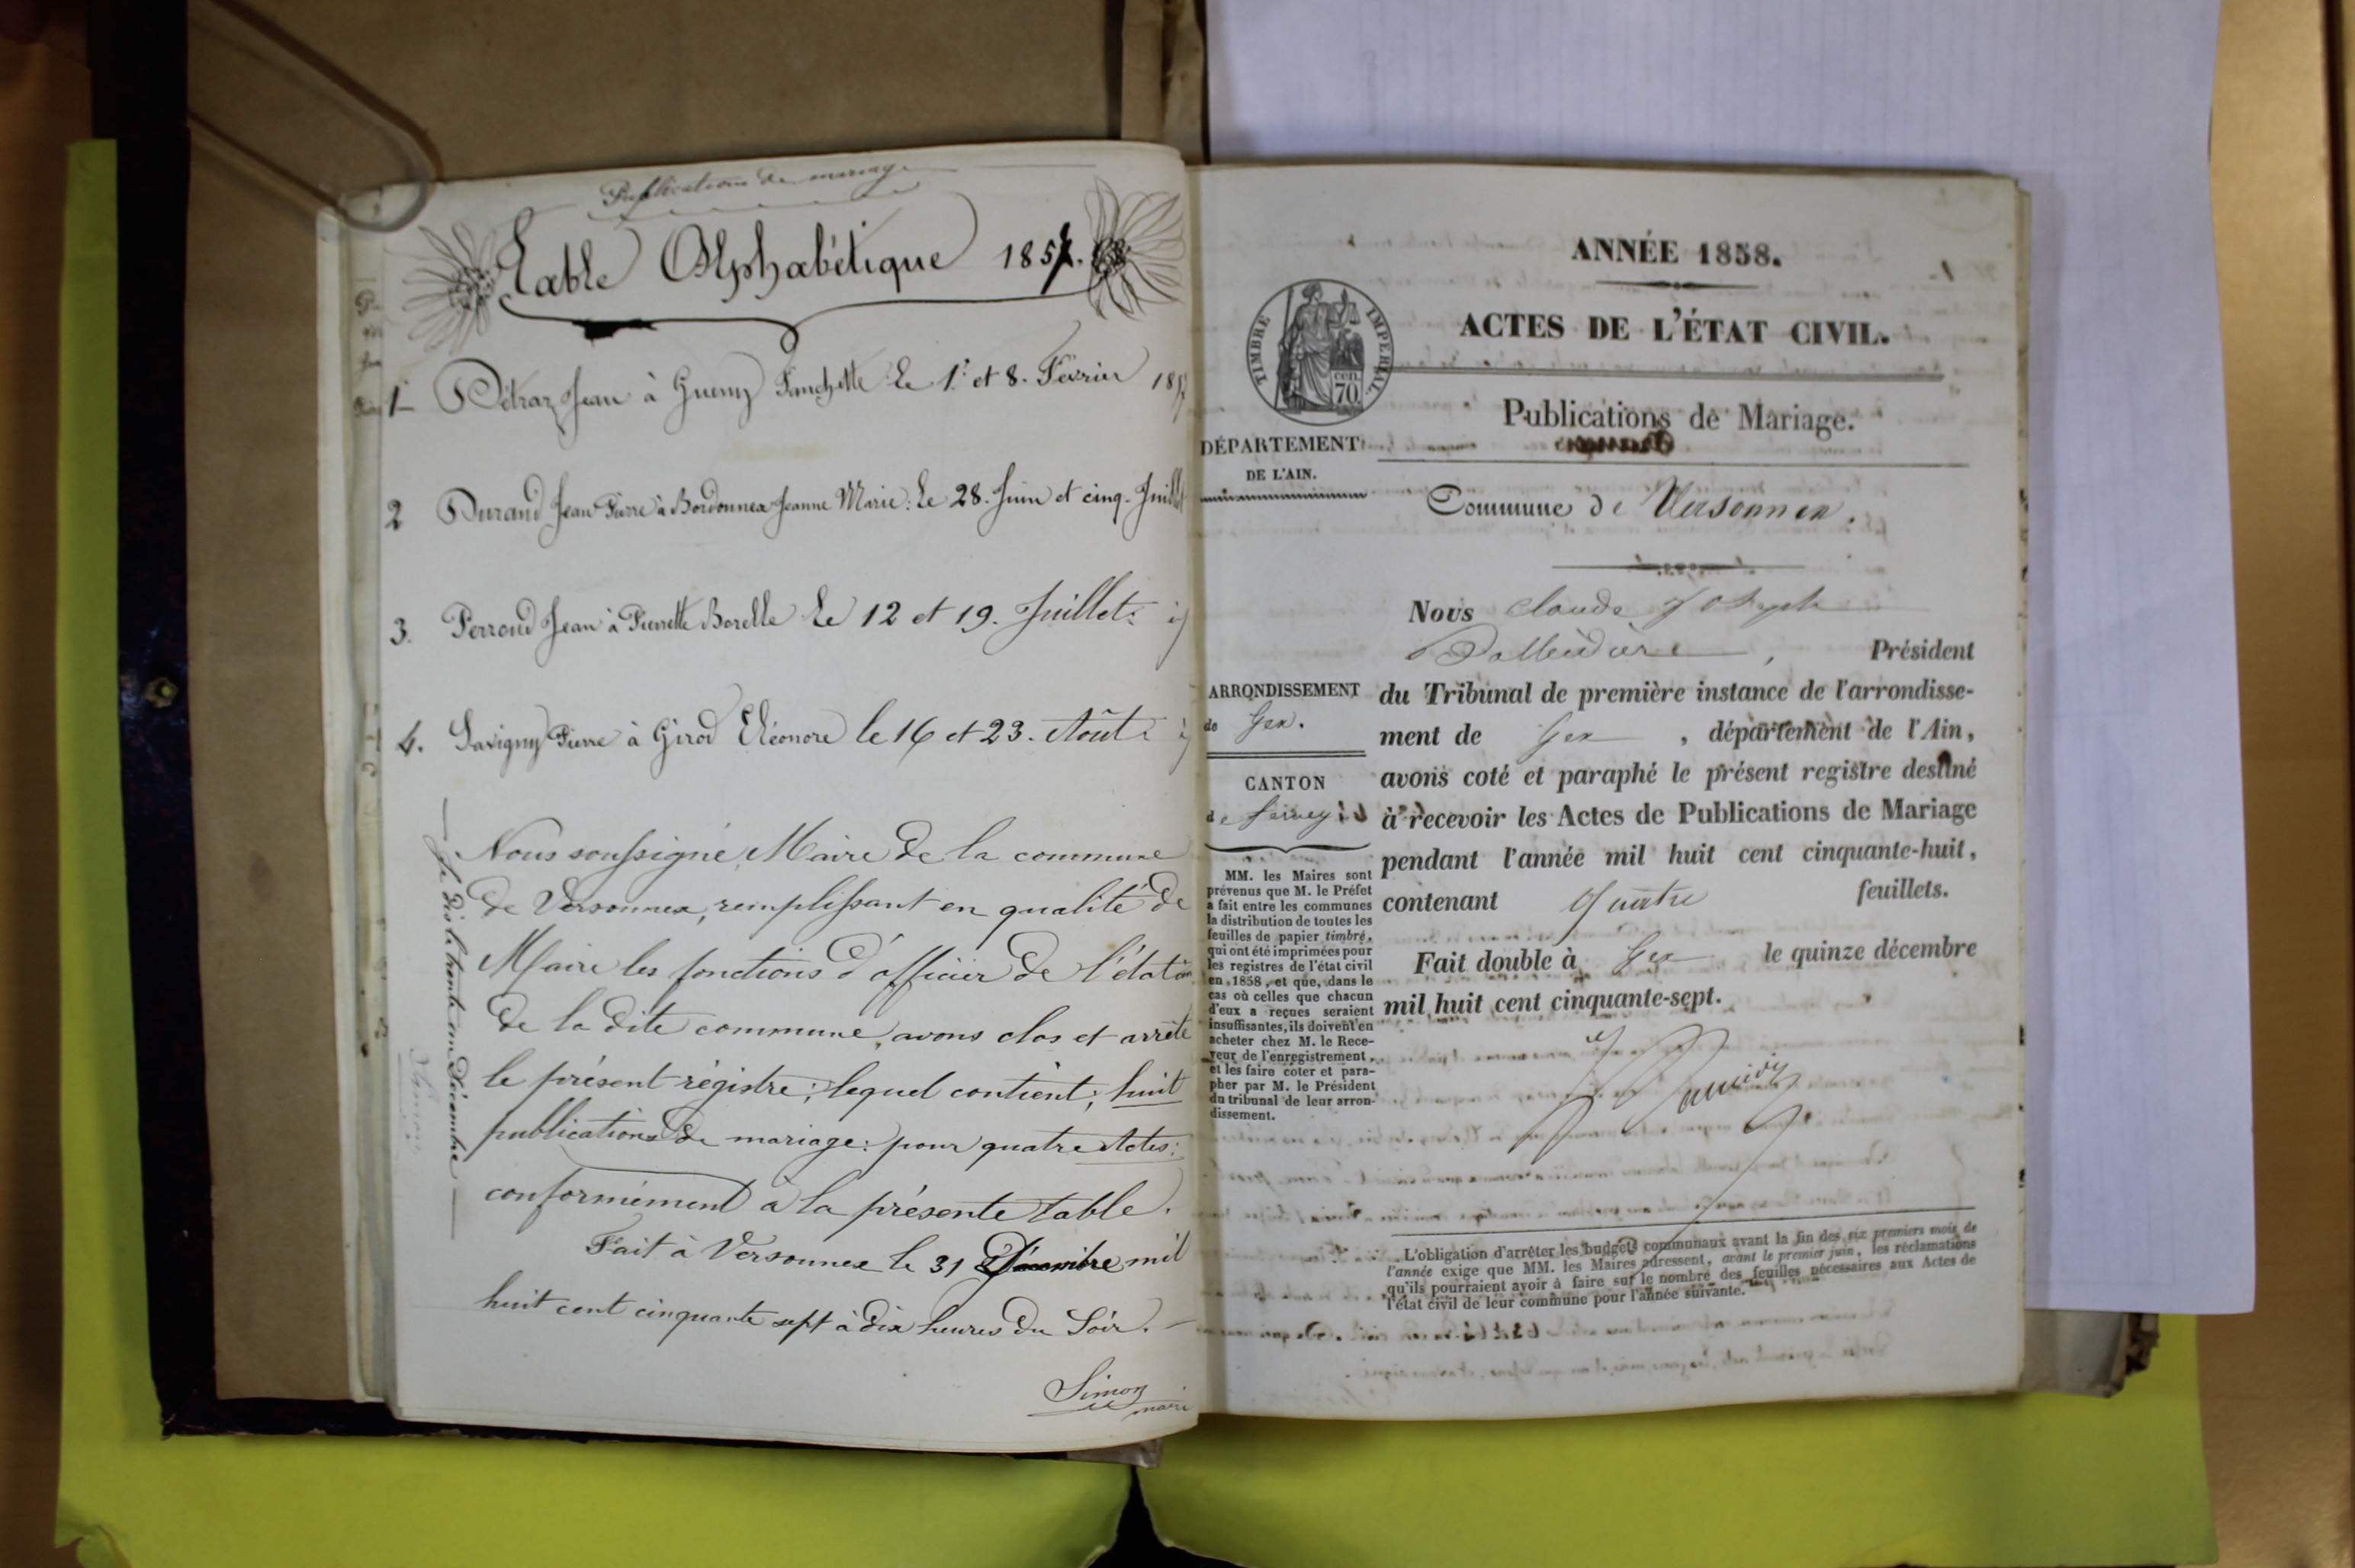 Publications de mariage
Table Alphabétique 1857.
1 Détraz Jean à Fanchette le 1er et 8. Février 185
2 Durand Jean Pierre à Bordonnex Jeanne Marie: le 28. Juin et cinq. Juillet
3. Perroud Jean à Pierrette Borelle le 12 et 19. Juillet
4. Savigny Pierre à Girod Eléonore le 16 et 23. Août
Nous soussigné, Maire de la commune
de Versonnex, remplissant en qualité de
Maire les fonctions d'officier de l'état
de la dite commune, avons clos et arrêté
le présent régistre; lequel contient; huit
publications de mariage: pour quatre Actes:
conformément à la présente table.
Fait à Versonnex le 31 Décembre mil
huit cent cinquante sept à dix heures du Soir.
Simon
maire
Je dis le trente un Décembre
Simon
ANNÉE 1858.
ACTES DE L'ÉTAT CIVIL.
TIMBRE IMPÉRIAL
70 cen
Publications de Mariage.
DÉPARTEMENT
DE L'AIN.
Commune de Versonnex.
Nous Claude Joseph
, Président
ARRONDISSEMENT
de Gex.
CANTON
de Ferney
du Tribunal de première instance de l'arrondisse-
ment de Gex , département de l'Ain,
avons coté et paraphé le présent registre destiné
à recevoir les Actes de Publications de Mariage
pendant l'année mil huit cent cinquante-huit,
contenant quatre feuillets.
Fait double à Gex le quinze décembre
mil huit cent cinquante-sept.
MM. les Maires sont
prévenus que M. le Préfet
a fait entre les communes
la distribution de toutes les
feuilles de papier timbré,
qui ont été imprimées pour
les registres de l'état civil
en 1858, et que, dans le
cas où celles que chacun
d'eux a reçues seraient
insuffisantes, ils doivent en
acheter chez M. le Rece-
veur de l'enregistrement,
et les faire coter et para-
pher par M. le Président
du tribunal de leur arron-
dissement.
L'obligation d'arrêter les budgets communaux avant la fin des six premiers mois de
l'année exige que MM. les Maires adressent, avant le premier juin, les réclamations
qu'ils pourraient avoir à faire sur le nombre des feuilles nécessaires aux Actes de
l'état civil de leur commune pour l'année suivante.